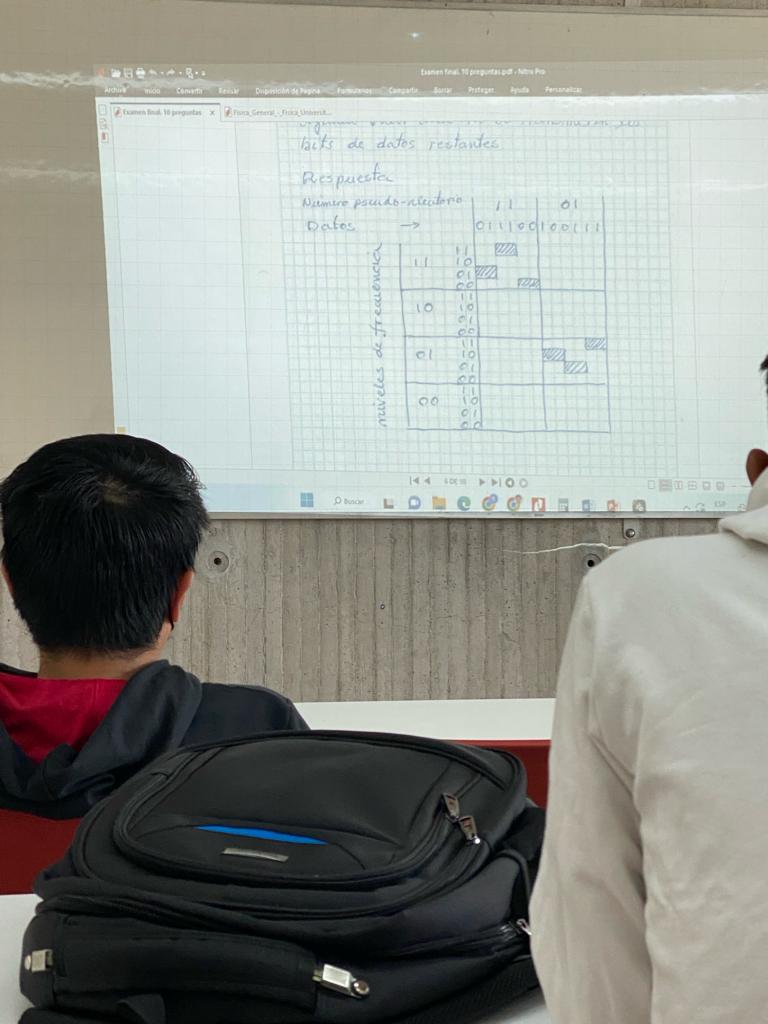 Examen final. 10 preguntas.pdf - Nitro Pro
Archivo Inicio Convertir Revisar Disposición de Página Formularios Compartir Borrar Proteger Ayuda Personalizar
Examen final. 10 preguntas × Física_General_-_Física_Universit...
bits de datos restantes
Respuesta
Número pseudo-aleatorio 11 01
Datos → 011100 100111
niveles de frecuencia
11 11
10
01
00
10 11
10
01
00
01 11
10
01
00
00 11
10
01
00
6 DE 10
Buscar
ESP